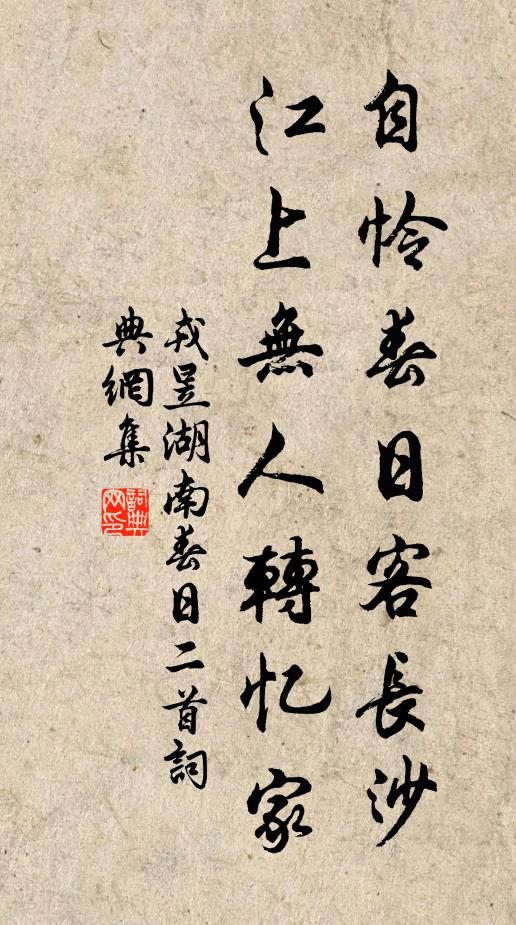 自怜春日客長沙
江上無人轉忆家
戎昱湖南春日二首詞
典網集
詞典
网印